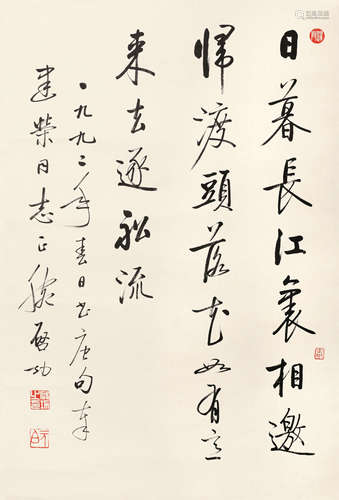 日暮長江裏相邀
帰渡頭落花如有意
来去逐舩流
一九九二年春日書唐句奉
建榮同志正腕 啓功